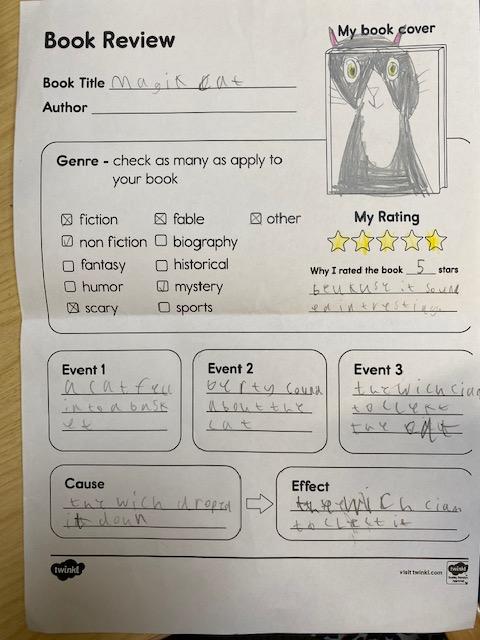 My book cover
Book Review
Book Title magik cat
Author
Genre - check as many as apply to
your book
fiction
fable
other
non fiction
biography
fantasy
historical
humor
mystery
scary
sports
My Rating
Why I rated the book 5 stars
beukuse it sound
ed intresting
Event 1
a cat fell
into a bask
et
Event 2
berty cound
about the
cat
Event 3
the wich ciam
to cllekt
the cat
Cause
the wich droped
it doun
Effect
the wich ciam
to cllect it
twinkl
visit twinkl.com
twinkl